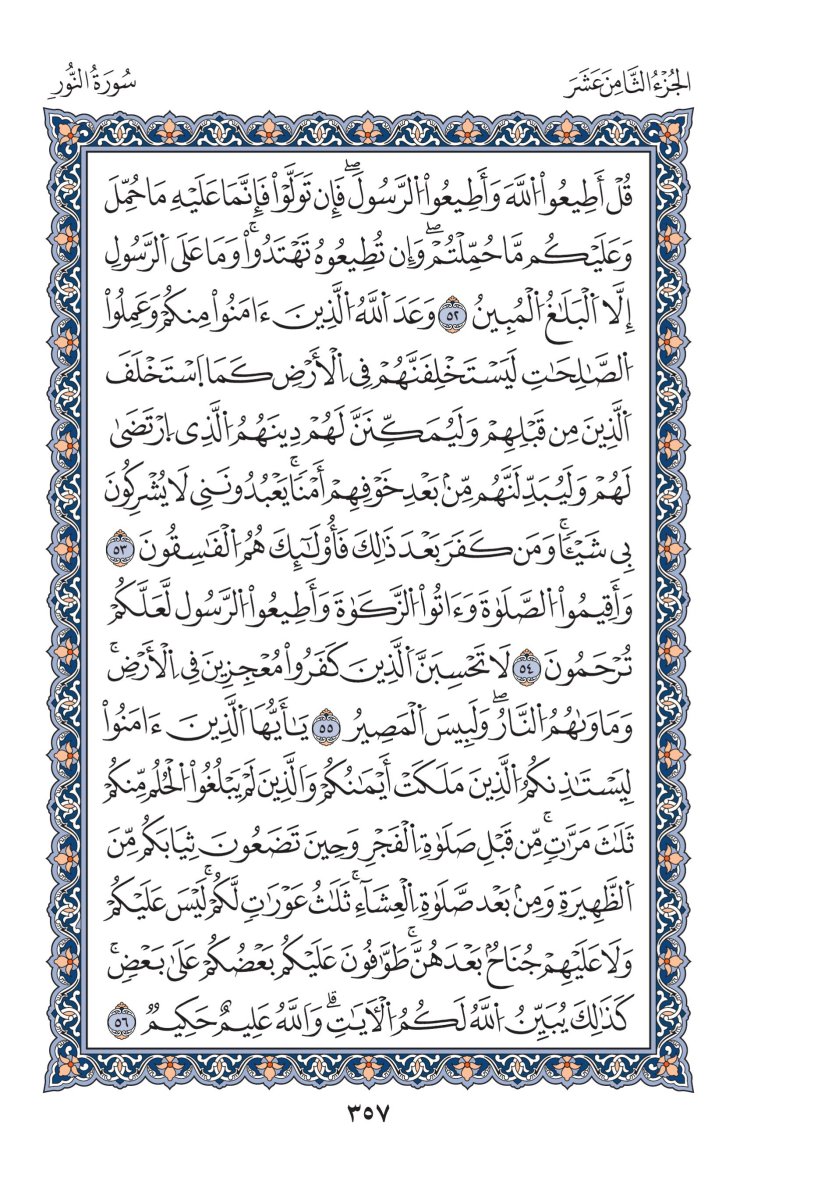 الجُزْءُ الثَّامِنَ عَشَرَ
سُورَةُ النُّورِ
قُلۡ أَطِيعُواْ اُللَّهَ وَأَطِيعُواْ اُلرَّسُولَۖ فَإِن تَوَلَّوۡاْ فَإِنَّمَا عَلَيۡهِ مَا حُمِّلَ
وَعَلَيۡكُم مَّا حُمِّلۡتُمۡۖ وَإِن تُطِيعُوهُ تَهۡتَدُواْۚ وَمَا عَلَى اَلرَّسُولِ
إِلَّا اَلۡبَلَٰغُ اُلۡمُبِينُ ٥٢ وَعَدَ اَللَّهُ اُلَّذِينَ ءَامَنُواْ مِنكُمۡ وَعَمِلُواْ
اُلصَّٰلِحَٰتِ لَيَسۡتَخۡلِفَنَّهُمۡ فِي اِلۡأَرۡضِ كَمَا اَسۡتَخۡلَفَ
اَلَّذِينَ مِن قَبۡلِهِمۡ وَلَيُمَكِّنَنَّ لَهُمۡ دِينَهُمُ اُلَّذِي اِرۡتَضَىٰ
لَهُمۡ وَلَيُبَدِّلَنَّهُم مِّنۢ بَعۡدِ خَوۡفِهِمۡ أَمۡنٗاۚ يَعۡبُدُونَنِي لَا يُشۡرِكُونَ
بِي شَيۡـٔٗاۚ وَمَن كَفَرَ بَعۡدَ ذَٰلِكَ فَأُوْلَٰٓئِكَ هُمُ اُلۡفَٰسِقُونَ ٥٣
وَأَقِيمُواْ اُلصَّلَوٰةَ وَءَاتُواْ اُلزَّكَوٰةَ وَأَطِيعُواْ اُلرَّسُول لَّعَلَّكُمۡ
تُرۡحَمُونَ ٥٤ لَا تَحۡسِبَنَّ اَلَّذِينَ كَفَرُواْ مُعۡجِزِينَ فِي اِلۡأَرۡضِۚ
وَمَاوَىٰهُمُ اُلنَّارُۖ وَلَبِيسَ اَلۡمَصِيرُ ٥٥ يَٰأَيُّهَا اَلَّذِينَ ءَامَنُواْ
لِيَسۡتَٰذِنكُمُ اُلَّذِينَ مَلَكَتۡ أَيۡمَٰنُكُمۡ وَالَّذِينَ لَمۡ يَبۡلُغُواْ اُلۡحُلُم مِّنكُمۡ
ثَلَٰثَ مَرَّٰتٖۚ مِّن قَبۡلِ صَلَوٰةِ اِلۡفَجۡرِ وَحِينَ تَضَعُونَ ثِيَابَكُم مِّنَ
اَلظَّهِيرَةِ وَمِنۢ بَعۡد صَّلَوٰةِ اِلۡعِشَآءِۚ ثَلَٰثُ عَوۡرَٰتٖ لَّكُمۡۚ لَيۡسَ عَلَيۡكُمۡ
وَلَا عَلَيۡهِمۡ جُنَاحُۢ بَعۡدَهُنَّۚ طَوَّٰفُونَ عَلَيۡكُم بَعۡضُكُمۡ عَلَىٰ بَعۡضٖۚ
كَذَٰلِكَ يُبَيِّنُ اُللَّهُ لَكُمُ اُلۡأٓيَٰتِۗ وَاللَّهُ عَلِيمٌ حَكِيمٞ ٥٦
٣٥٧